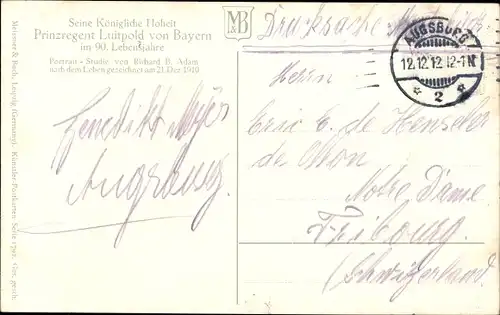 Seine Königliche Hoheit
Prinzregent Luitpold von Bayern
im 90. Lebensjahre
Portrait - Studie von Richard B. Adam
nach dem Leben gezeichnet am 21. Dez. 1910
Meissner & Buch, Leipzig (Germany). Künstler-Postkarten Serie
M&B
Drucksache
AUGSBURG
12.12.12.12-1N.
* 2 *
Herrn
Eric E. de Henseler
de Chon
Notre Dame
Fribourg.
(Schwizerland.
Benedikt
Augsburg.